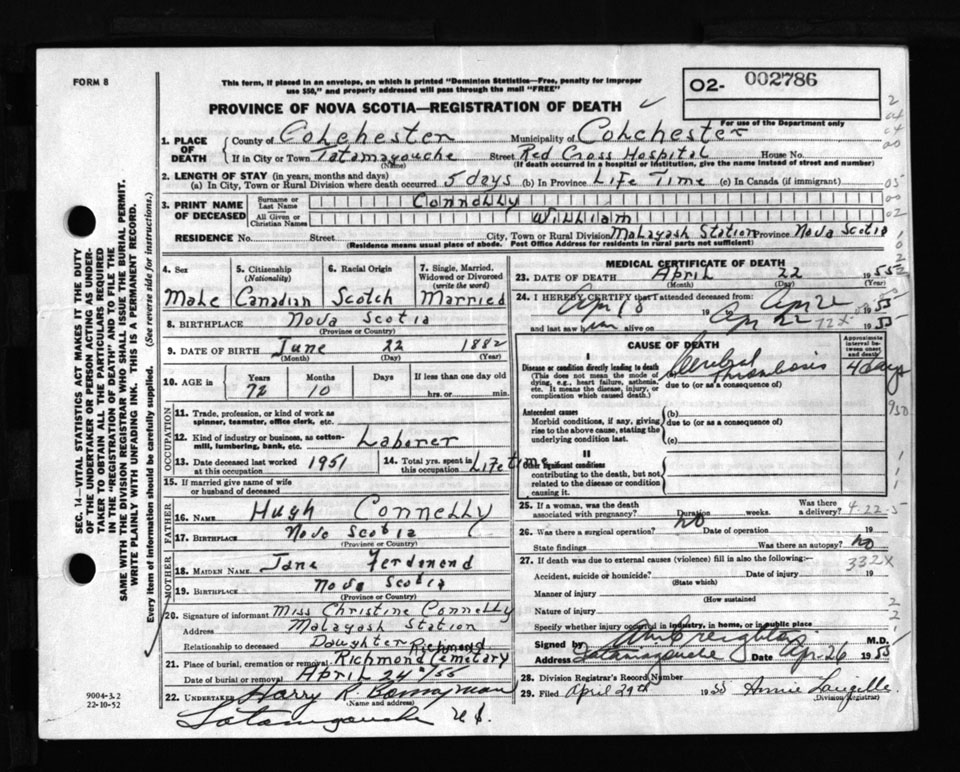 FORM 8
This form, if placed in an envelope, on which is printed "Dominion Statistics—Free, penalty for improper
use $50," and properly addressed will pass through the mail "FREE"
O2- 002786
For use of the Department only
PROVINCE OF NOVA SCOTIA—REGISTRATION OF DEATH
SEC. 14—VITAL STATISTICS ACT MAKES IT THE DUTY
OF THE UNDERTAKER OR PERSON ACTING AS UNDER-
TAKER TO OBTAIN ALL THE PARTICULARS REQUIRED
IN THE "REGISTRATION OF DEATH" AND TO FILE THE
SAME WITH THE DIVISION REGISTRAR WHO SHALL ISSUE THE BURIAL PERMIT.
WRITE PLAINLY WITH UNFADING INK. THIS IS A PERMANENT RECORD.
Every item of information should be carefully supplied. (See reverse side for instructions.)
1. PLACE OF DEATH
County of Colchester Municipality of Colchester
If in City or Town Tatamagouche Street Red Cross Hospital House No.
(Name) (If death occurred in a hospital or institution, give the name instead of street and number)
2. LENGTH OF STAY (in years, months and days)
(a) In City, Town or Rural Division where death occurred 5 days (b) In Province Life Time (c) In Canada (if immigrant)
3. PRINT NAME OF DECEASED
Surname or Last Name Connolly
All Given or Christian Names William
RESIDENCE No. Street City, Town or Rural Division Malagash Station Province Nova Scotia
(Residence means usual place of abode. Post Office Address for residents in rural parts not sufficient)
4. Sex
Male
5. Citizenship (Nationality)
Canadian
6. Racial Origin
Scotch
7. Single, Married, Widowed or Divorced (write the word)
Married
8. BIRTHPLACE Nova Scotia
(Province or Country)
9. DATE OF BIRTH June 22 1882
(Month) (Day) (Year)
10. AGE in Years 72 Months 10 Days If less than one day old hrs. or min.
OCCUPATION
11. Trade, profession, or kind of work as spinner, teamster, office clerk, etc.
12. Kind of industry or business, as cotton-mill, lumbering, bank, etc. Laborer
13. Date deceased last worked at this occupation 1951
14. Total yrs. spent in this occupation Life time
15. If married give name of wife or husband of deceased
FATHER
16. NAME Hugh Connelly
17. BIRTHPLACE Nova Scotia
(Province or Country)
MOTHER
18. MAIDEN NAME Jane Ferdinend
19. BIRTHPLACE Nova Scotia
(Province or Country)
20. Signature of informant Miss Christine Connelly
Address Malagash Station
Relationship to deceased Daughter
Richmond
21. Place of burial, cremation or removal Richmond Cemetary
Date of burial or removal April 24th/55
22. UNDERTAKER Harry R. Bonnyman
(Name and address)
Tatamagouche N.S.
9004-3.2
22-10-52
MEDICAL CERTIFICATE OF DEATH
23. DATE OF DEATH April 22 1955
(Month) (Day) (Year)
24. I HEREBY CERTIFY that I attended deceased from
Apr 18 19 to Apr 22 1955
and last saw him alive on Apr 22 1955
72x
CAUSE OF DEATH
Approximate interval between onset and death
I
Disease or condition directly leading to death
(This does not mean the mode of dying, e.g., heart failure, asthenia, etc. It means the disease, injury, or complication which caused death.)
Cerebral Thrombosis
4 days
due to (or as a consequence of)
Antecedent causes
Morbid conditions, if any, giving rise to the above cause, stating the underlying condition last.
(b)
due to (or as a consequence of)
(c)
II
Other significant conditions
contributing to the death, but not related to the disease or condition causing it.
25. If a woman, was the death associated with pregnancy? Duration weeks. Was there a delivery?
4-22-5
26. Was there surgical operation? no Date of operation 19
State findings Was there an autopsy? no
27. If death was due to external causes (violence) fill in also the following:-
332X
Accident, suicide or homicide? Date of injury 19
(State which)
Manner of injury
(How sustained
Nature of injury
Specify whether injury occurred in industry, in home, or in public place
Signed by Creighton M.D.
Address Tatamagouche Date Apr 26 1955
28. Division Registrar's Record Number
29. Filed April 29th 1955 Annie Langille
(Division Registrar)